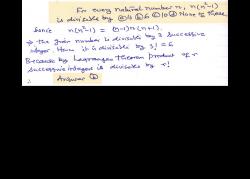 For every natural number n, n(n²-1)
is divisible by (a) 4 (b) 6 (c) 10 (d) None of these
Since n(n²-1) = (n-1)n(n+1)
⇒ the given number is divisible by 3 successive
integer. Hence it is divisible by 3! = 6
Because by Lagranges theorem product of r
successive integers is divisible by r!
Answer (b)